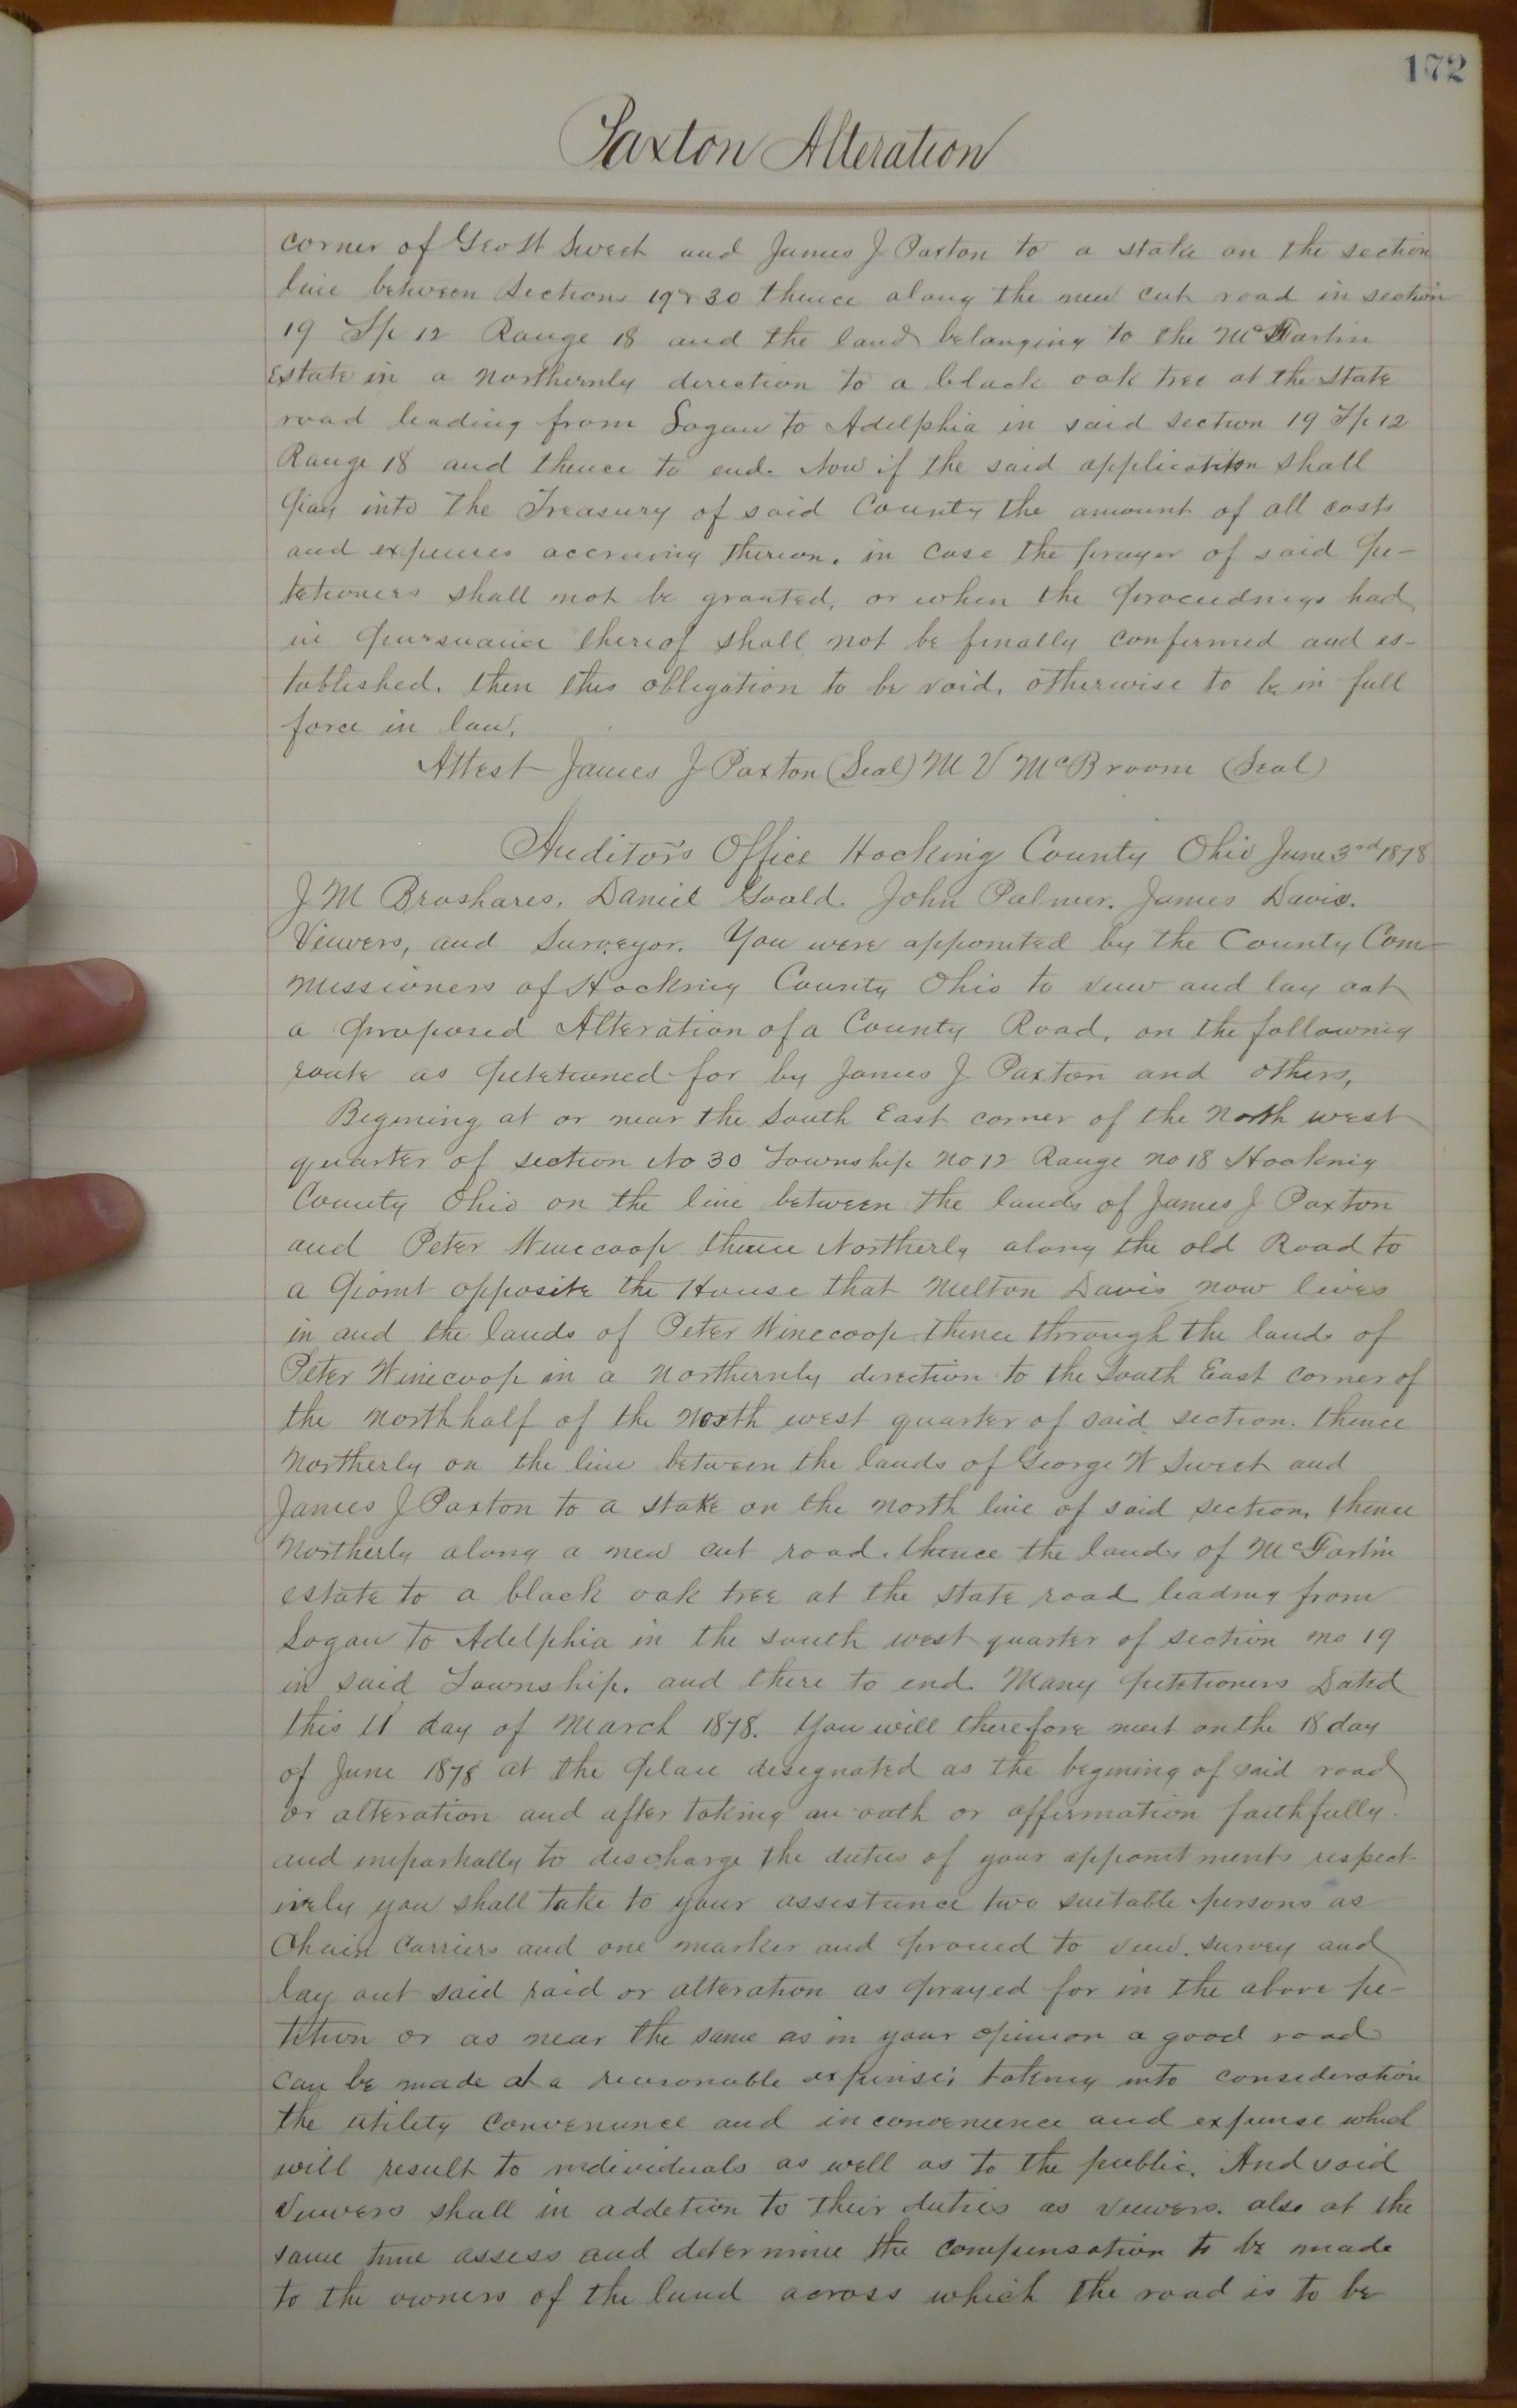 172
Paxton Alteration
corner of Geo W Sweet and James J Paxton to a stake on the section
line between Sections 19 & 30 thence along the new cut road in section
19 Tp 12 Range 18 and the land belonging to the
Estate in a Northernly direction to a black oak tree at the State
road leading from Logan to Adelphia in said section 19 Tp 12
Range 18 and thence to end. Now if the said application shall
pay into the Treasury of said County the amount of all costs
and expenses accruing thereon. in case the prayer of said pe-
tetioners shall not be granted, or when the proceedings had
in pursuance thereof shall not be finally confirmed and es-
tablished. then this obligation to be void, otherwise to be in full
force in law.
Attest James J Paxton (Seal) M V McBroom (Seal)
Auditor's Office Hocking County Ohio June 3rd 1878
J M Brashares. Daniel Goald. John Palmer. James Davis.
Viewers, and Surveyor. You were appointed by the County Com-
missioners of Hocking County Ohio to view and lay out
a proposed Alteration of a County Road, on the following
route as petetioned for by James J Paxton and others,
Begining at or near the South East corner of the North west
quarter of section No 30 Township No 12 Range No 18 Hocking
County Ohio on the line between the lands of James J Paxton
and Peter Winecoop thence Northerly along the old Road to
a point opposite the House that Melton Davis now lives
in and the lands of Peter Winecoop thence through the lands of
Peter Winecoop in a Northernly direction to the South East corner of
the North half of the North west quarter of said section. thence
Northerly on the line between the lands of George W Sweet and
James J Paxton to a stake on the North line of said section, thence
Northerly along a new cut road. thence the lands of
estate to a black oak tree at the state road leading from
Logan to Adelphia in the south west quarter of section no 19
in said Township. and there to end. Many petetioners Dated
this 11 day of March 1878. You will therefore meet on the 18 day
of June 1878 at the place designated as the begining of said road
or alteration and after taking an oath or affirmation faithfully
and impartially to discharge the duties of your appointments respect-
ively you shall take to your assistance two suetable persons as
Chain Carriers and one marker and proceed to view. survey and
lay out said raid or alteration as prayed for in the above pe-
tition or as near the same as in your opinion a good road
can be made at a reasonable expense; taking into consideration
the utility convenience and inconvenience and expense which
will result to individuals as well as to the public. And said
Viewers shall in addetion to their duties as viewers. also at the
same time assess and determine the compensation to be made
to the owners of the land across which the road is to be